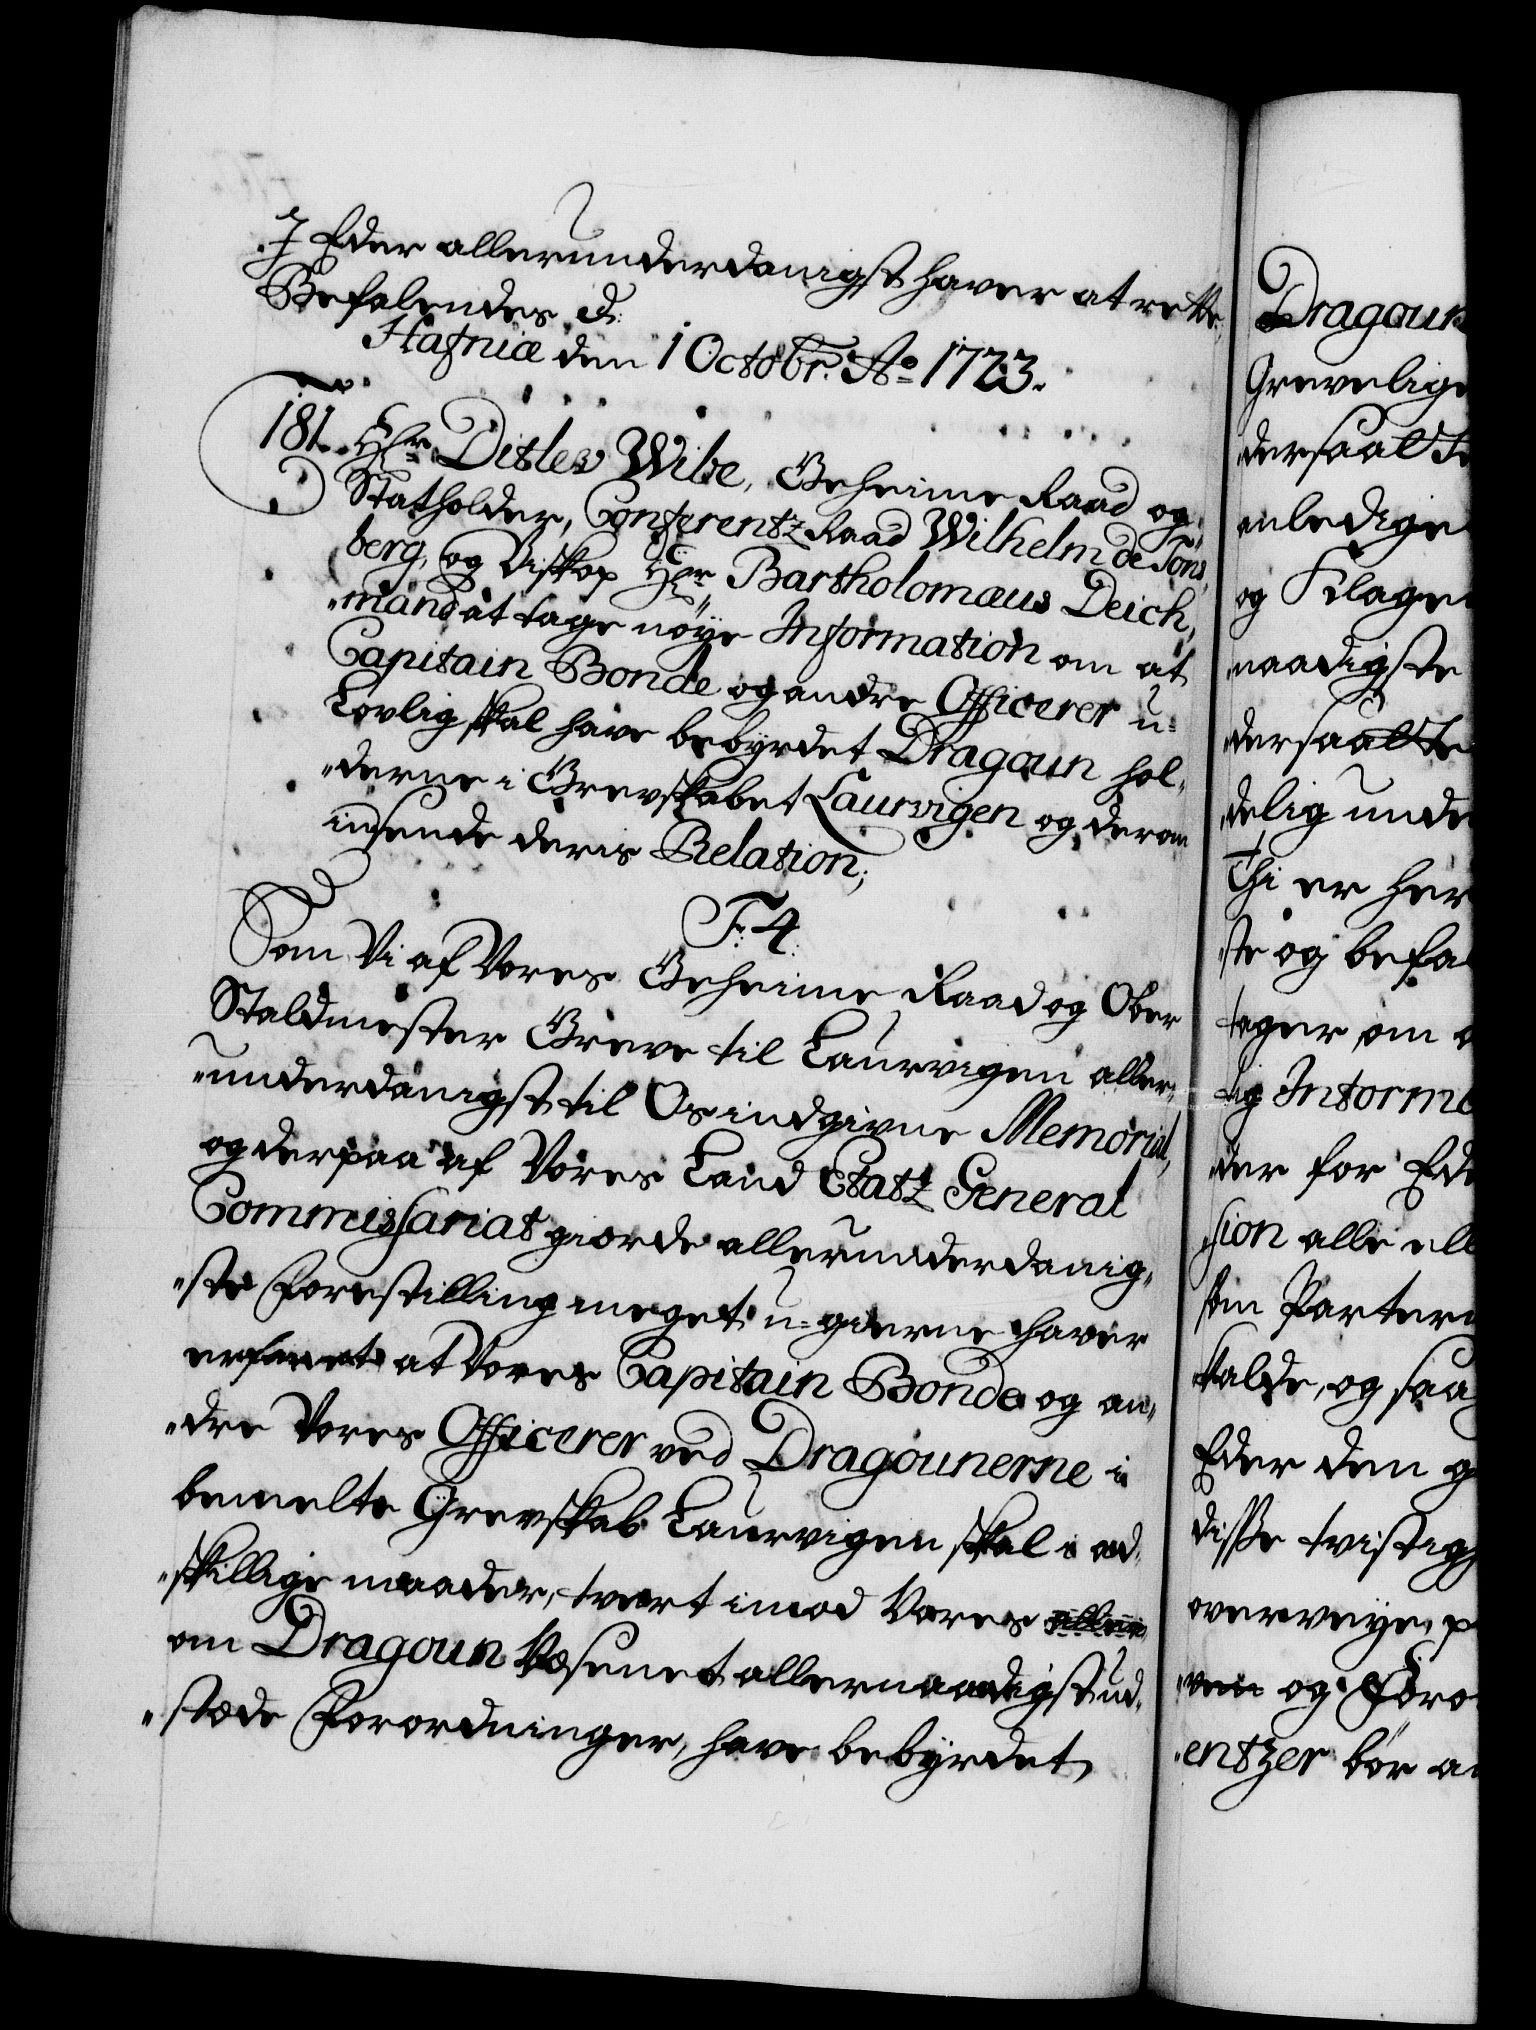 I Eder allerunderdanigst haver at rette,
Befalendes &.
Hafniæ den 1 Octobr: Ao 1723.
181. Hr. Ditlev Wibe, Geheime Raad og
Statholder, Conferentz Raad Wilhelm de Tons,
berg, og Biskop Hr. Bartholomæus Deich,
„mand at tage nöye Information om at
Capitain Bonde og andre Officerer u=
Lovlig skal have bebyrdet Dragoun hol,
„derne i Grevskabet Laurvigen og derom
indsende deris Relation;
F: 4.
Som Vi af Vores Geheime Raad og Ober
Staldmester Greve til Laurvigen aller,
„underdanigst til Os indgivne Memorial,
og derpaa af Vores Land Etatz General
Commissariat giorde allerunderdanig,
„ste Forestilling meget u=gierne haver
erfaret at Vores Capitain Bonde og an,
„dre Vores Officerer ved Dragounerne i
bemelte Grevskab Laurvigen skal i ad,
„skillige maader, tvert imod Vores
om Dragoun Væsenet allernaadigst ud,
„stæde Forordninger, have bebyrdet
Dragoun
Grevelige
dersaatte
anledige
og Klage
naadigste
dersaatte
delig unde
Thi er her
ste og befal
tager om
lig Informa
der for Ede
sion alle ell
som Parter
kalde, og saa
Eder den g
disse tvistig
overveye, p
og Foro
entzer bør a